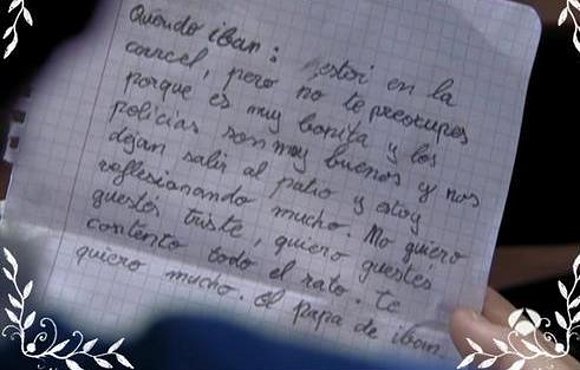 Querido iban: estoi en la
carcel, pero no te preocupes
porque es muy bonita y los
policias son muy buenos y nos
dejan salir al patio y estoy
reflesionando mucho. No quiero
questés triste, quiero questés
contento todo el rato. te
quiero mucho. el papa de iban.